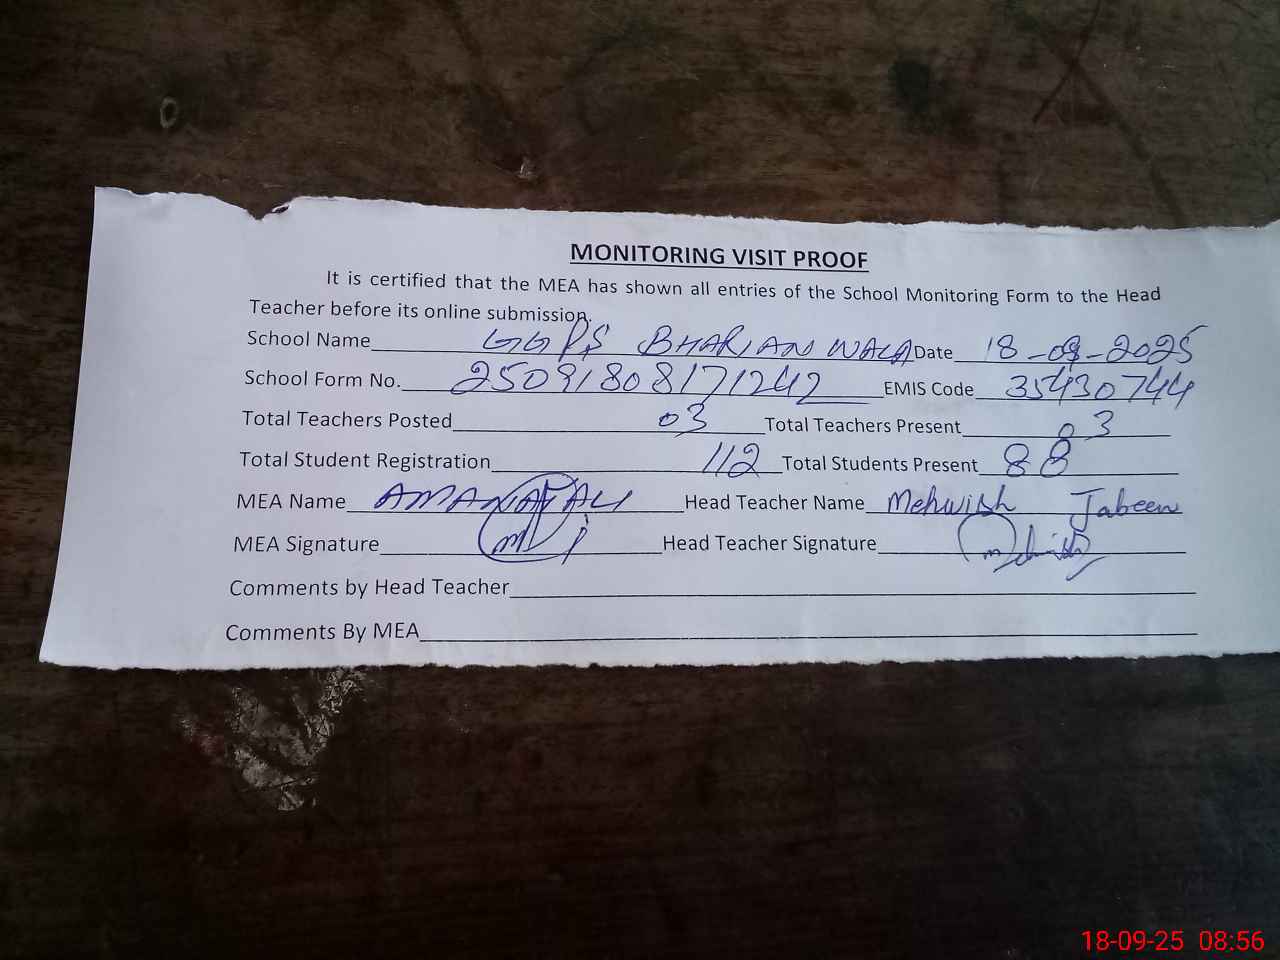 MONITORING VISIT PROOF
It is certified that the MEA has shown all entries of the School Monitoring Form to the Head
Teacher before its online submission.
School Name GGPS BHARIAN WALA Date 18-09-2025
School Form No. 25091808171242 EMIS Code 35430744
Total Teachers Posted 03 Total Teachers Present 03
Total Student Registration 112 Total Students Present 88
MEA Name AMANAT ALI Head Teacher Name Mehwish Jabeen
MEA Signature Head Teacher Signature
Comments by Head Teacher
Comments By MEA
18-09-25 08:56